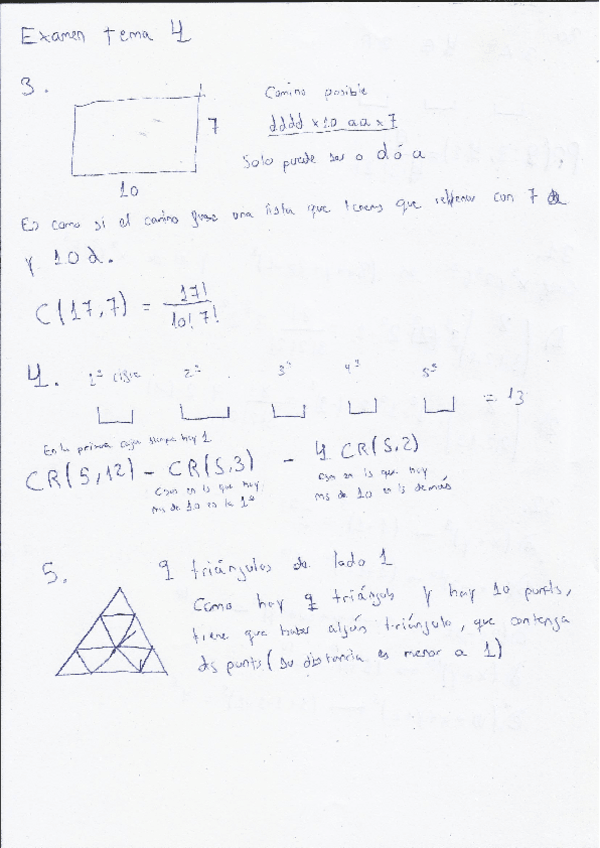 Examen tema 4
3.
7
10
Camino posible
dddd x10 aa x7
Solo puede ser o d ó a
Es como si el camino fuese una lista que tienes que rellenar con 7 a
y 10 d.
C(17,7) = 17! / 10! 7!
4. 1ª cifra 2ª 3ª 4ª 5ª
= 13
En la primera caja siempre hay 1
CR(5,12) - CR(5,3) - 4 CR(5,2)
Casos en los que hay
más de 10 en la 1ª
Casos en los que hay
más de 10 en las demás
5.
9 triángulos de lado 1
Como hay 9 triánguls y hay 10 punts,
tiene que haber algún triángulo, que contenga
ds punts (su distancia es menor a 1)